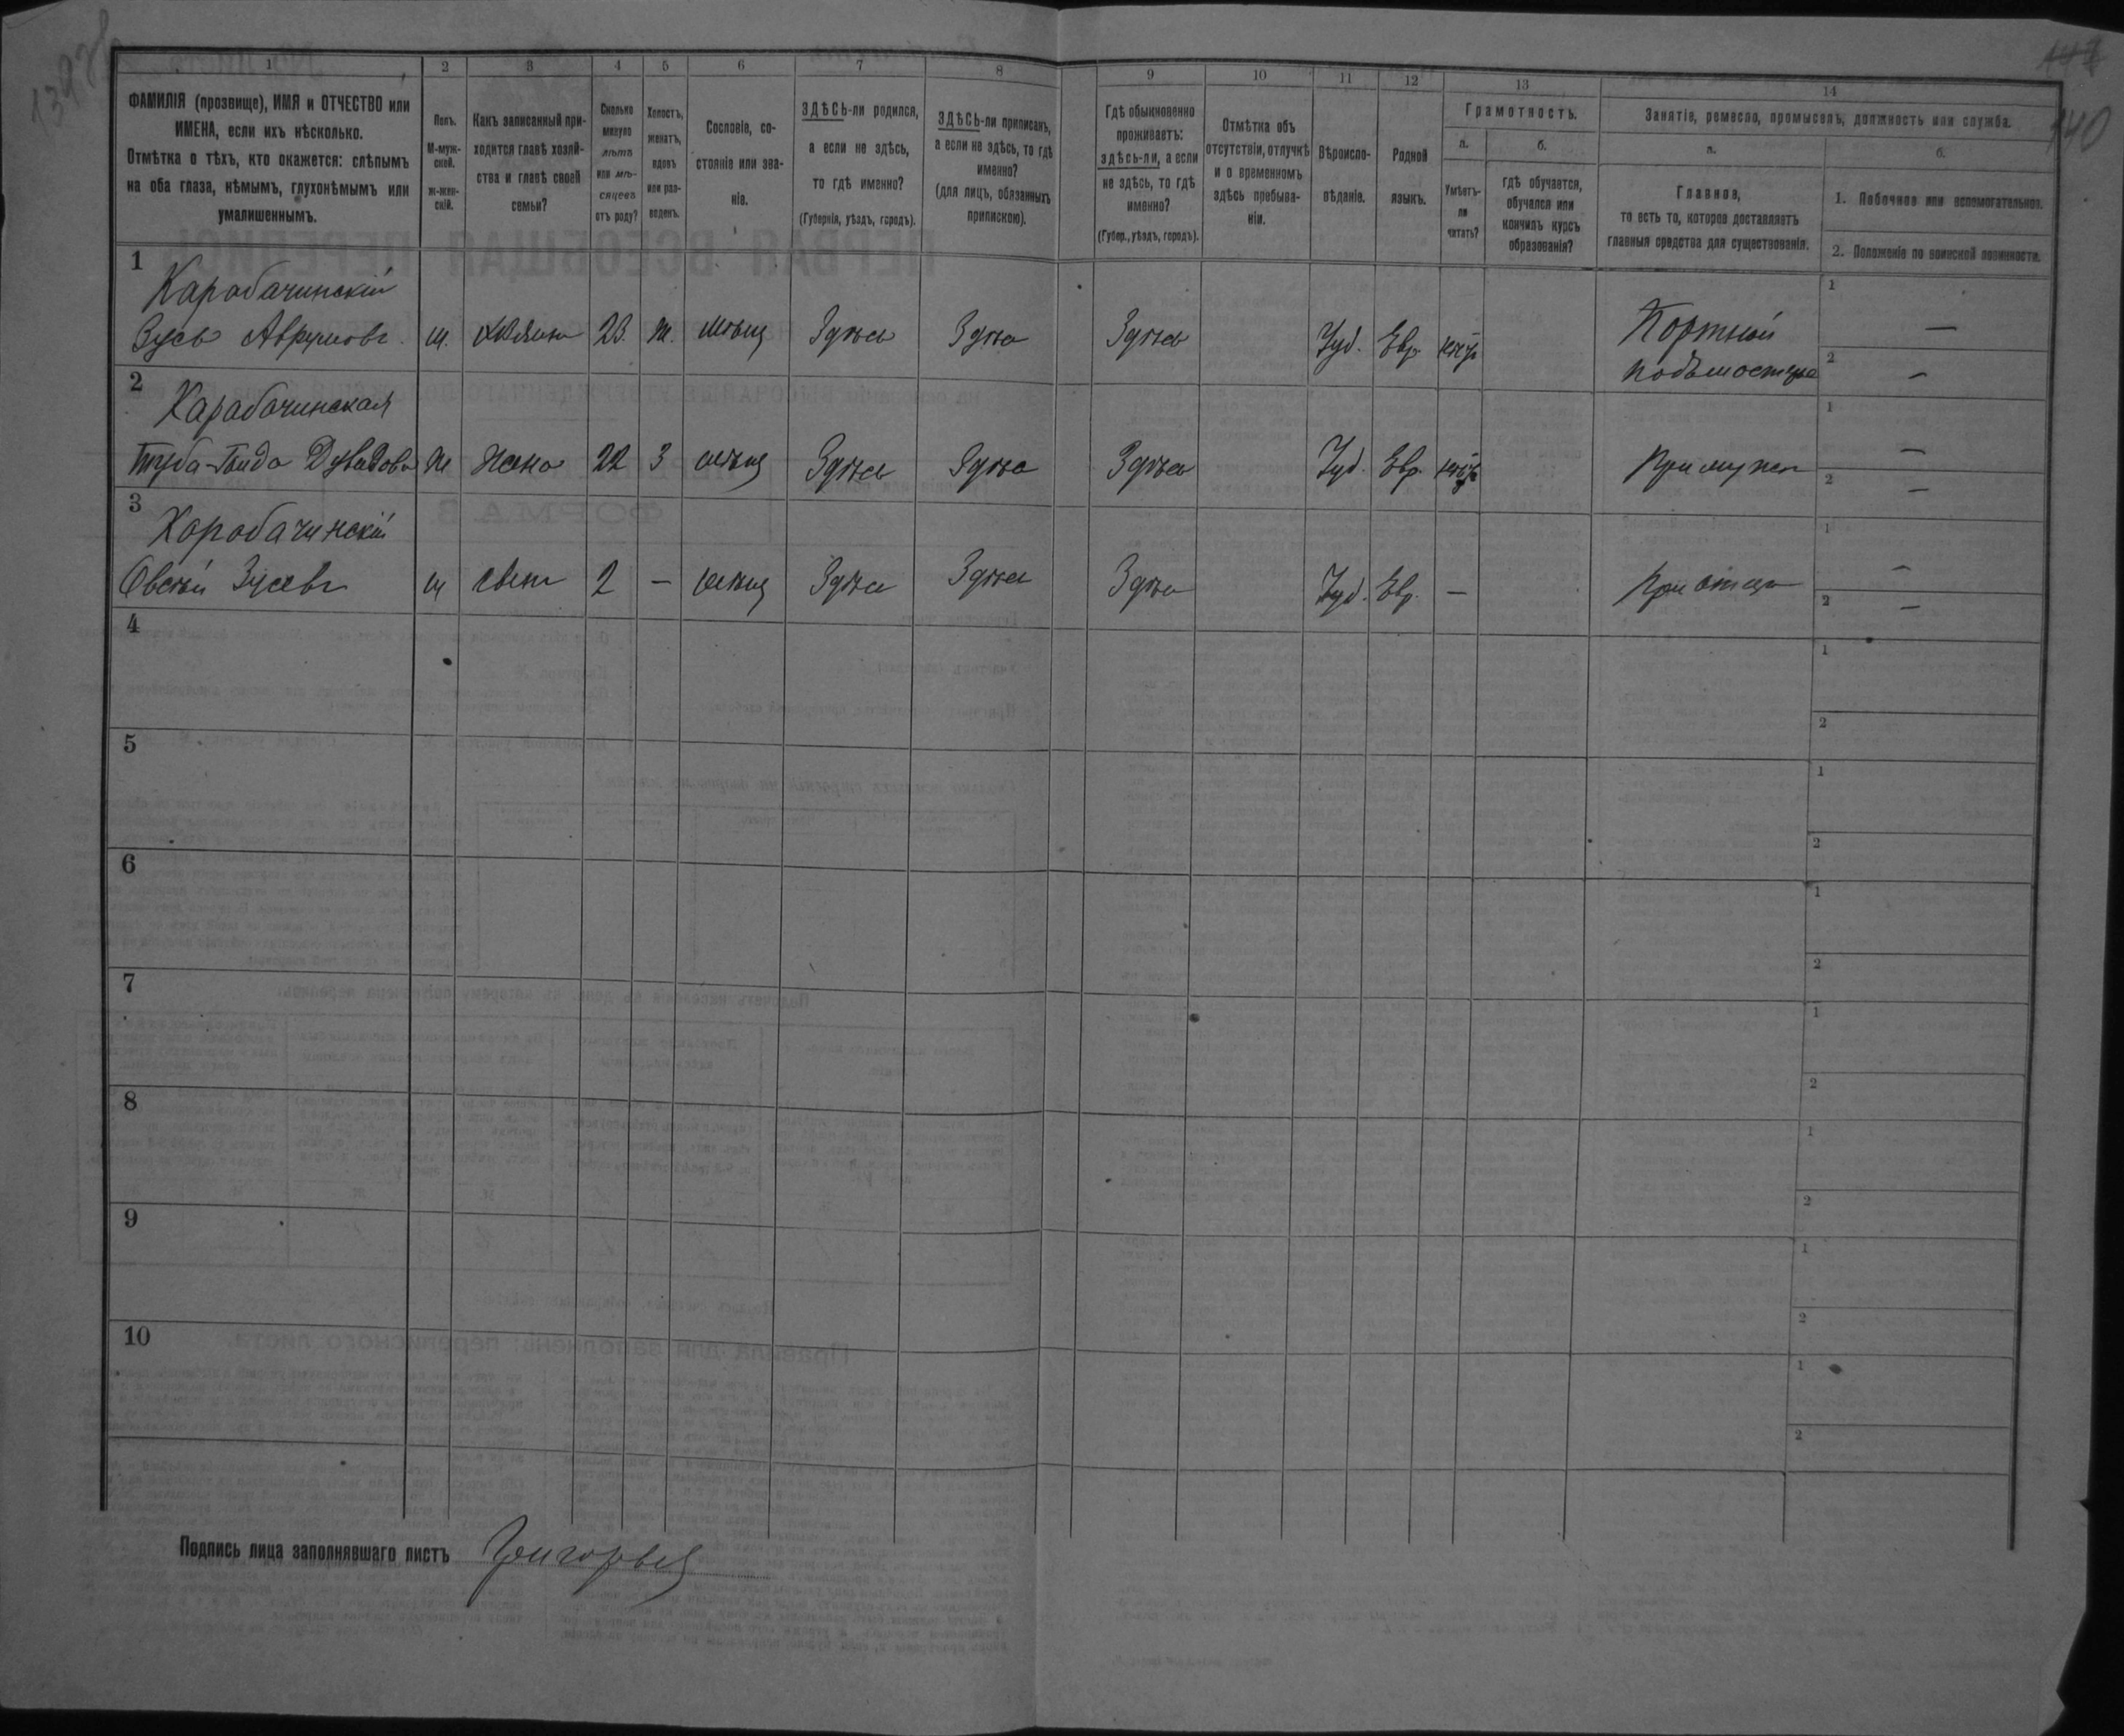 139об
141
140
1
2
3
4
5
6
7
8
9
10
11
12
13
14
ФАМИЛІЯ (прозвище), ИМЯ и ОТЧЕСТВО или
ИМЕНА, если ихъ нѣсколько.
Отмѣтка о тѣхъ, кто окажется: слѣпымъ
на оба глаза, нѣмымъ, глухонѣмымъ или
умалишеннымъ.
Полъ.
М-муж-
ской.
ж-жен-
скій.
Какъ записанный при-
ходится главѣ хозяй-
ства и главѣ своей
семьи?
Сколько
минуло
лѣтъ
или мѣ-
сяцевъ
отъ роду?
Холостъ,
женатъ,
вдовъ
или раз-
веденъ.
Сословіе, со-
стояніе или зва-
ніе.
ЗДѢСЬ-ли родился,
а если не здѣсь,
то гдѣ именно?
(Губернія, уѣздъ, городъ).
ЗДѢСЬ-ли приписанъ,
а если не здѣсь, то гдѣ
именно?
(для лицъ, обязанныхъ
припискою).
Гдѣ обыкновенно
проживаетъ:
здѣсь-ли, а если
не здѣсь, то гдѣ
именно?
(Губер., уѣздъ, городъ).
Отмѣтка объ
отсутствіи, отлучкѣ
и о временномъ
здѣсь пребыва-
ніи.
Вѣроиспо-
вѣданіе.
Родной
языкъ.
Грамотность.
а.
Умѣетъ-
ли
читать?
б.
гдѣ обучается,
обучался или
кончилъ курсъ
образованія?
Занятіе, ремесло, промыселъ, должность или служба.
а.
Главное,
то есть то, которое доставляетъ
главныя средства для существованія.
б.
1. Побочное или вспомогательное.
2. Положеніе по воинской повинности.
1
Карабачинскій
Зусь Аврумовъ м. хозяинъ 23. ж. мѣщ Здѣсь Здѣсь Здѣсь Іуд. Евр. Портной
подъмостерье
1 —
2 —
2
Карабачинская
Дувидова ж Жена 22 З мѣщ Здѣсь Здѣсь Здѣсь Іуд. Евр. При мужѣ
1 —
2 —
3
Карабачинскій
Овсѣй Зусевъ м сынъ 2 — мѣщ Здѣсь Здѣсь Здѣсь Іуд. Евр. — При отцѣ
1 —
2 —
4
1
2
5
1
2
6
1
2
7
1
2
8
1
2
9
1
2
10
1
2
Подпись лица заполнявшаго листъ